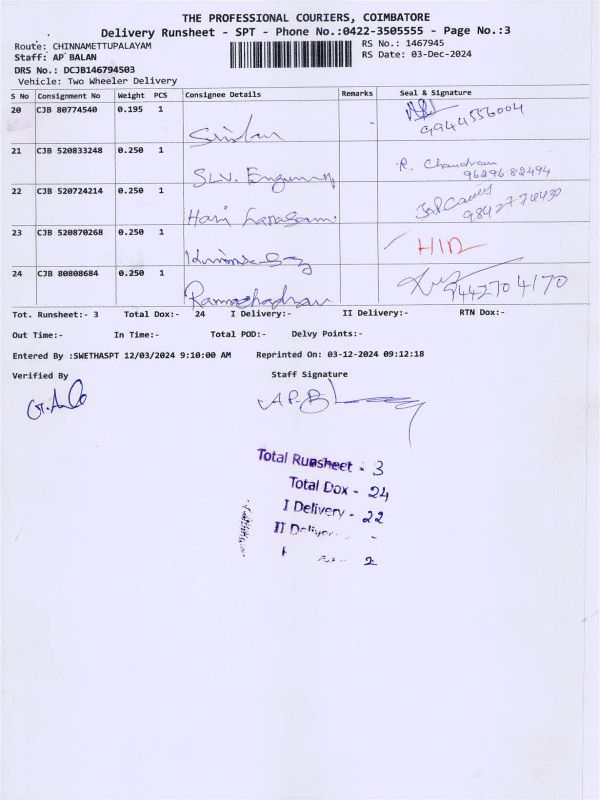 THE PROFESSIONAL COURIERS, COIMBATORE
Delivery Runsheet - SPT - Phone No.:0422-3505555 - Page No.:3
Route: CHINNAMETTUPALAYAM
RS No.: 1467945
Staff: AP BALAN
RS Date: 03-Dec-2024
DRS No.: DCJB146794503
Vehicle: Two Wheeler Delivery
S No Consignment No Weight PCS Consignee Details Remarks Seal & Signature
20 CJB 80774540 0.195 1
9944556004
21 CJB 520833248 0.250 1
SLV. R. Chandran
9629682494
22 CJB 520724214 0.250 1
Hari
23 CJB 520870268 0.250 1
24 CJB 80808684 0.250 1
9442704170
Tot. Runsheet:- 3 Total Dox:- 24 I Delivery:- II Delivery:- RTN Dox:-
Out Time:- In Time:- Total POD:- Delvy Points:-
Entered By :SWETHASPT 12/03/2024 9:10:00 AM Reprinted On: 03-12-2024 09:12:18
Verified By Staff Signature
Total Runsheet - 3
Total Dox - 24
I Delivery - 22
II Deliver -
2